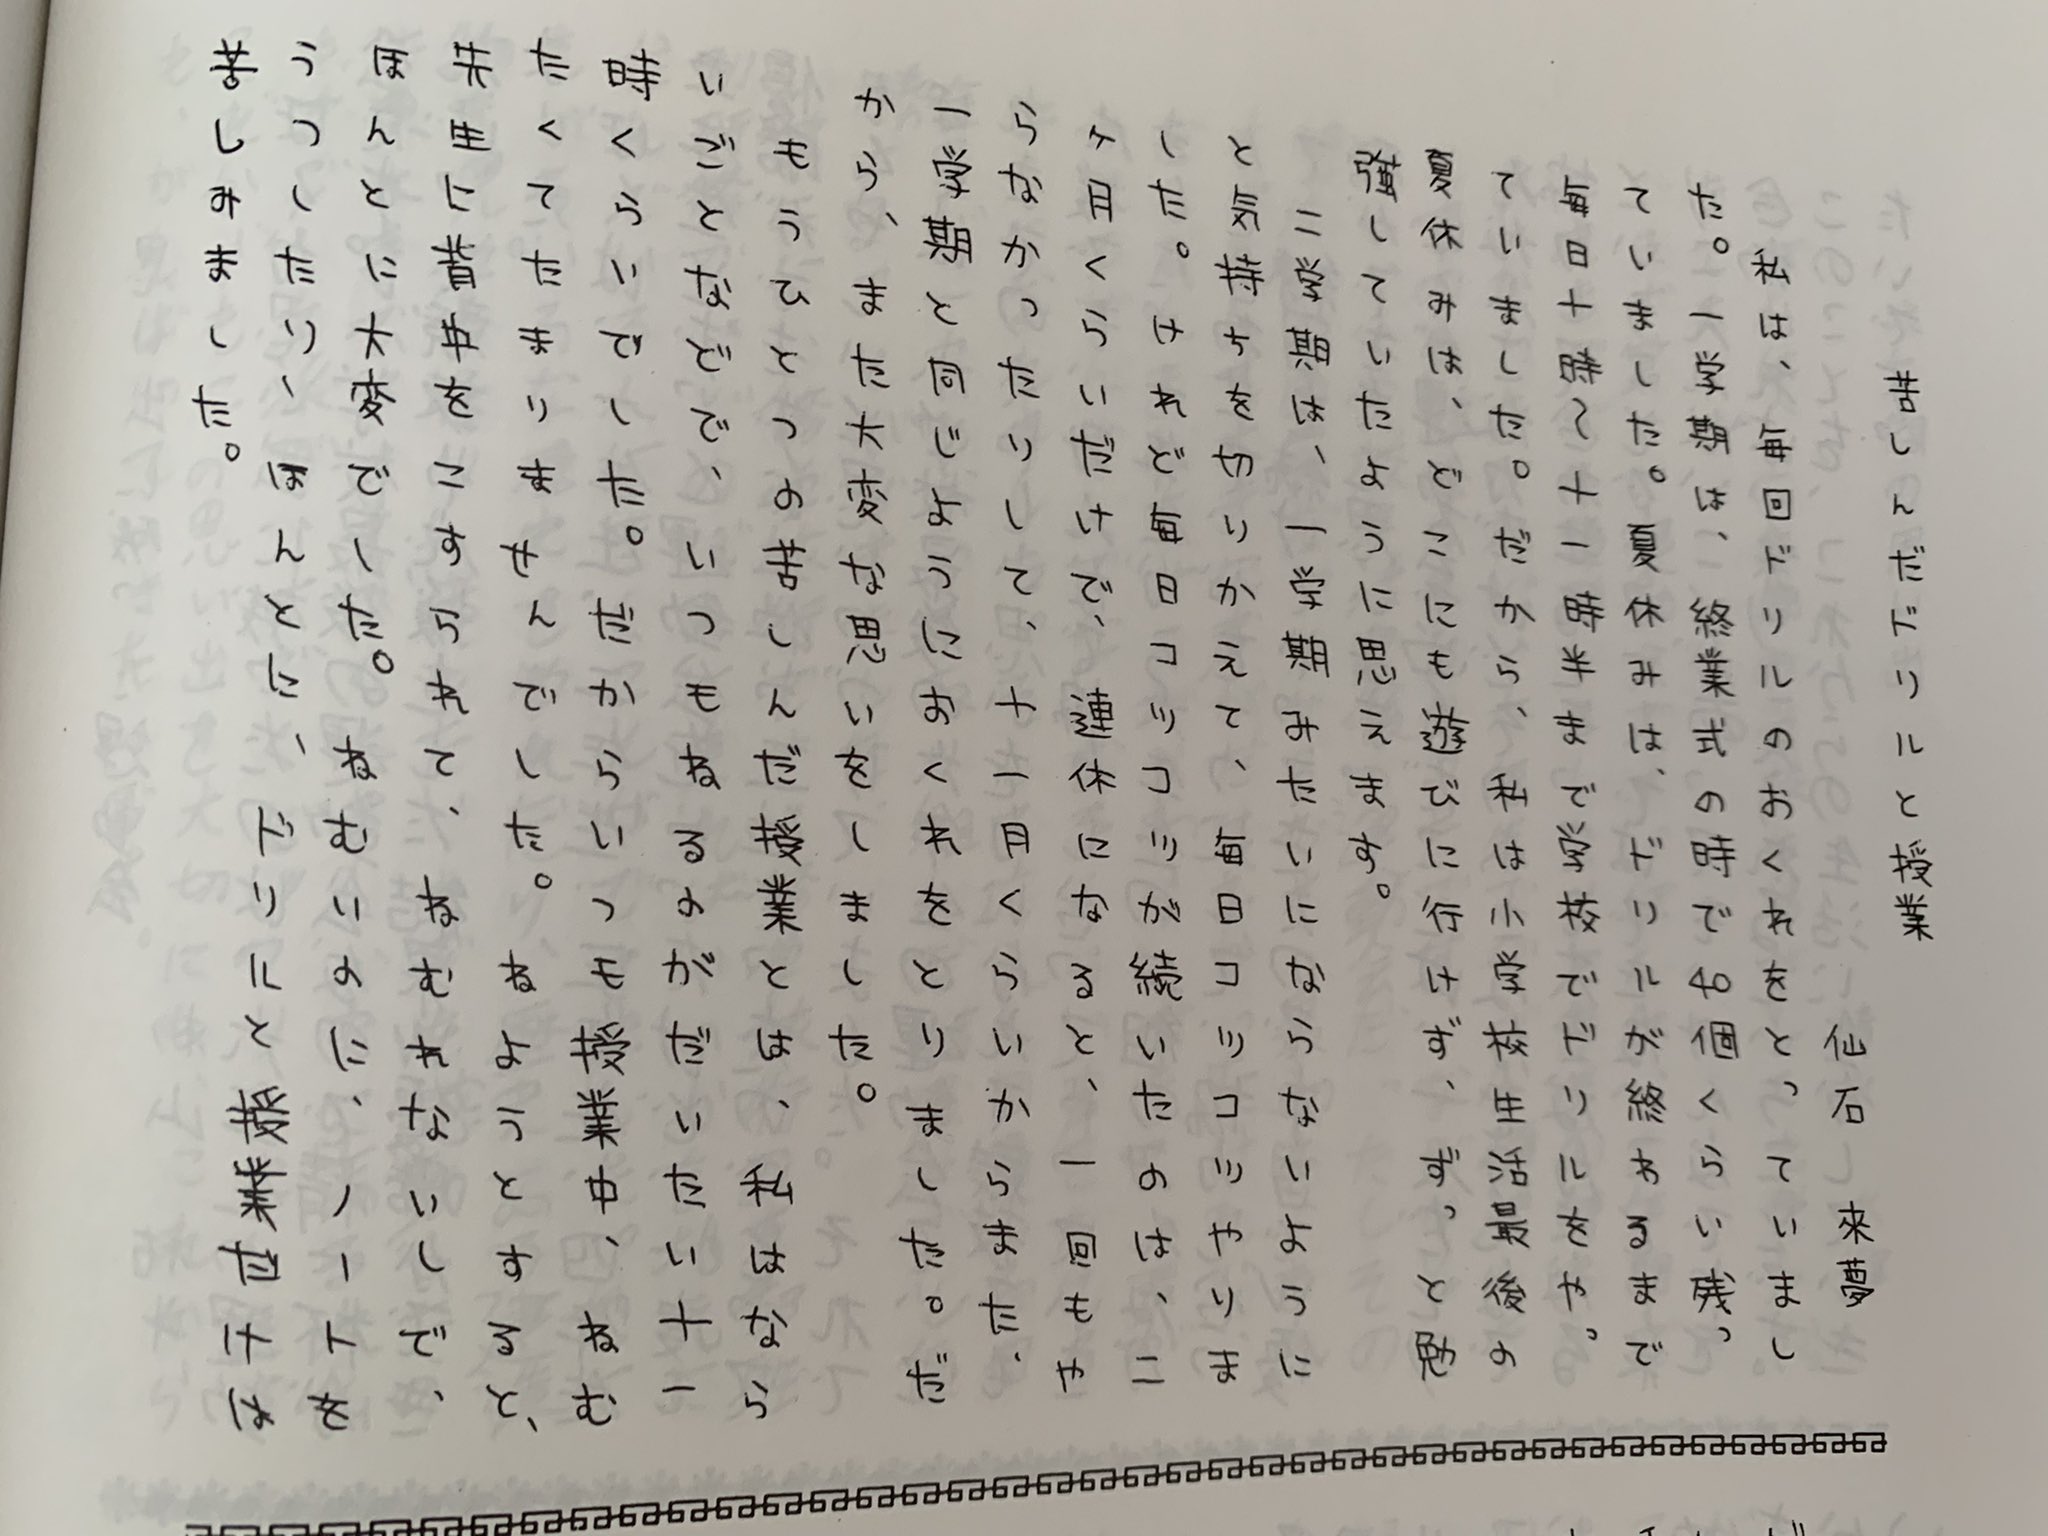 苦しんだドリルと授業
仙石 来夢
私は、毎回ドリルのおくれをとっていまし
た。一学期は、終業式の時で40個くらい残っ
ていました。夏休みは、ドリルが終わるまで
毎日十時〜十一時半まで学校でドリルをやっ
ていました。だから、私は小学校生活最後の
夏休みは、どこにも遊びに行けず、ずっと勉
強していたように思えます。
二学期は、一学期みたいにならないように
と気持ちを切りかえて、毎日コツコツやりま
した。けれど毎日コツコツが続いたのは、二
ヶ月くらいだけで、連休になると、一回もや
らなかったりして、十一月くらいからまた、
一学期と同じようにおくれをとりました。だ
から、また大変な思いをしました。
もうひとつの苦しんだ授業とは、私はなら
いごとなどで、いつもねるのがだいたい十一
時くらいでした。だからいつも授業中、ねむ
たくてたまりませんでした。ねようとすると、
先生に背中をこすられて、ねむれないしで、
ほんとに大変でした。ねむいのに、ノートを
うつしたり、ほんとに、ドリルと授業だけは
苦しみました。